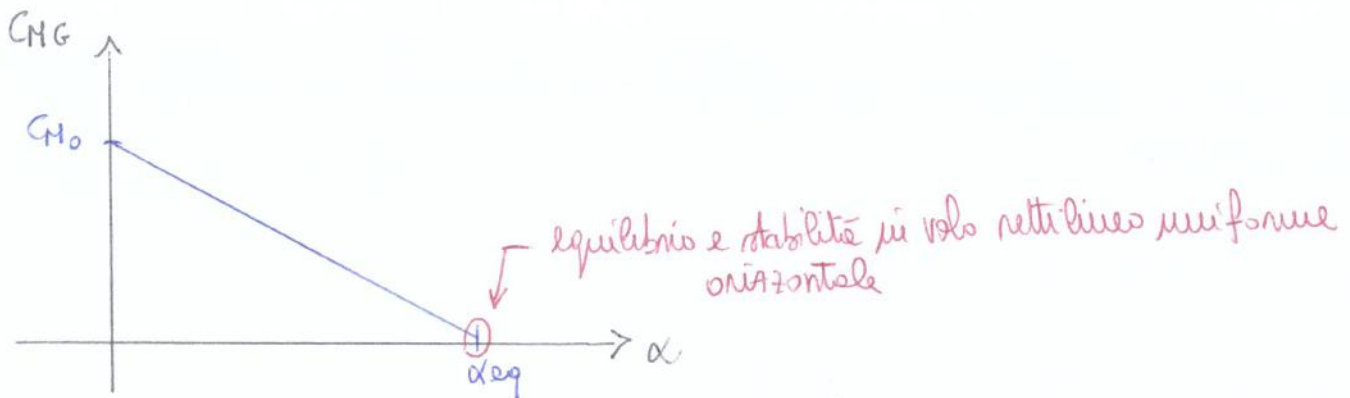 CMG
CM0
equilibrio e stabilità in volo rettilineo uniforme
orizzontale
α
αeq